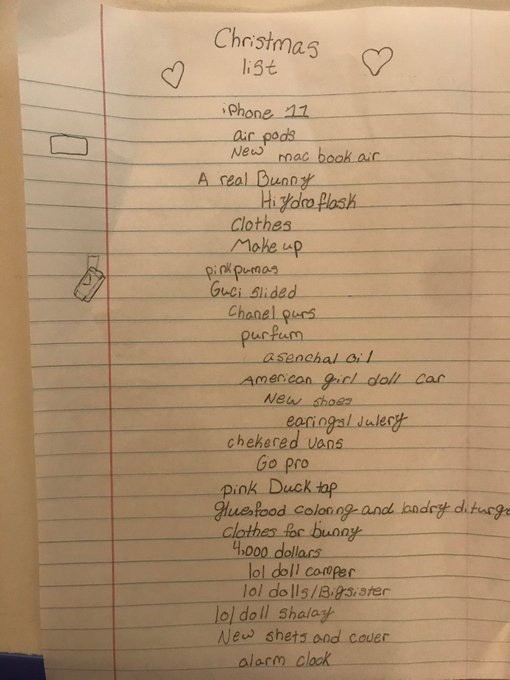 Christmas
list
iPhone 11
air pods
New mac book air
A real Bunny
Hiydroflask
Clothes
Make up
pinkpumas
Guci slided
Chanel purs
purfum
asenchal oil
American girl doll car
New shoes
earings/Julery
chekered vans
Go pro
pink Duck tap
glue,food coloring and landry diturge
clothes for bunny
4,000 dollars
lol doll camper
lol dolls/Bigsister
lol doll shalay
New shets and cover
alarm clock